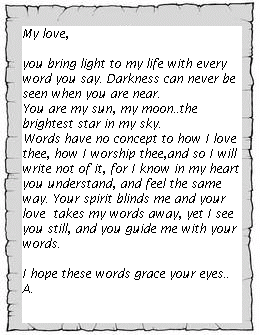 My love,
you bring light to my life with every
word you say. Darkness can never be
seen when you are near.
You are my sun, my moon..the
brightest star in my sky.
Words have no concept to how I love
thee, how I worship thee,and so I will
write not of it, for I know in my heart
you understand, and feel the same
way. Your spirit blinds me and your
love  takes my words away, yet I see
you still, and you guide me with your
words.
I hope these words grace your eyes..
A.